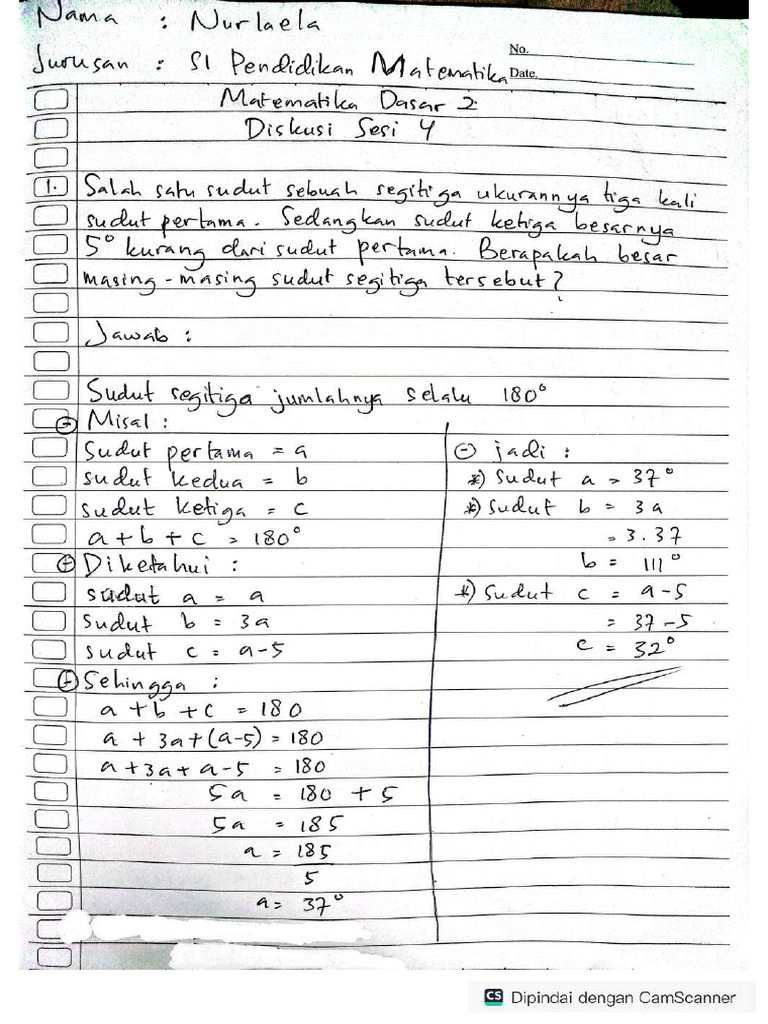 Nama : Nurlaela
Jurusan : S1 Pendidikan Matematika
No.
Date.
Matematika Dasar 2
Diskusi Sesi 4
1. Salah satu sudut sebuah segitiga ukurannya tiga kali
sudut pertama. Sedangkan sudut ketiga besarnya
5° kurang dari sudut pertama. Berapakah besar
masing-masing sudut segitiga tersebut?
Jawab :
Sudut segitiga jumlahnya selalu 180°
Misal :
Sudut pertama = a
sudut kedua = b
sudut ketiga = c
a + b + c = 180°
Diketahui :
sudut a = a
sudut b = 3a
sudut c = a-5
Sehingga :
a + b + c = 180
a + 3a + (a-5) = 180
a + 3a + a - 5 = 180
5a = 180 + 5
5a = 185
a = 185
5
a = 37°
jadi :
*) Sudut a = 37°
*) Sudut b = 3a
= 3.37
b = 111°
*) Sudut c = a-5
= 37-5
c = 32°
CS Dipindai dengan CamScanner